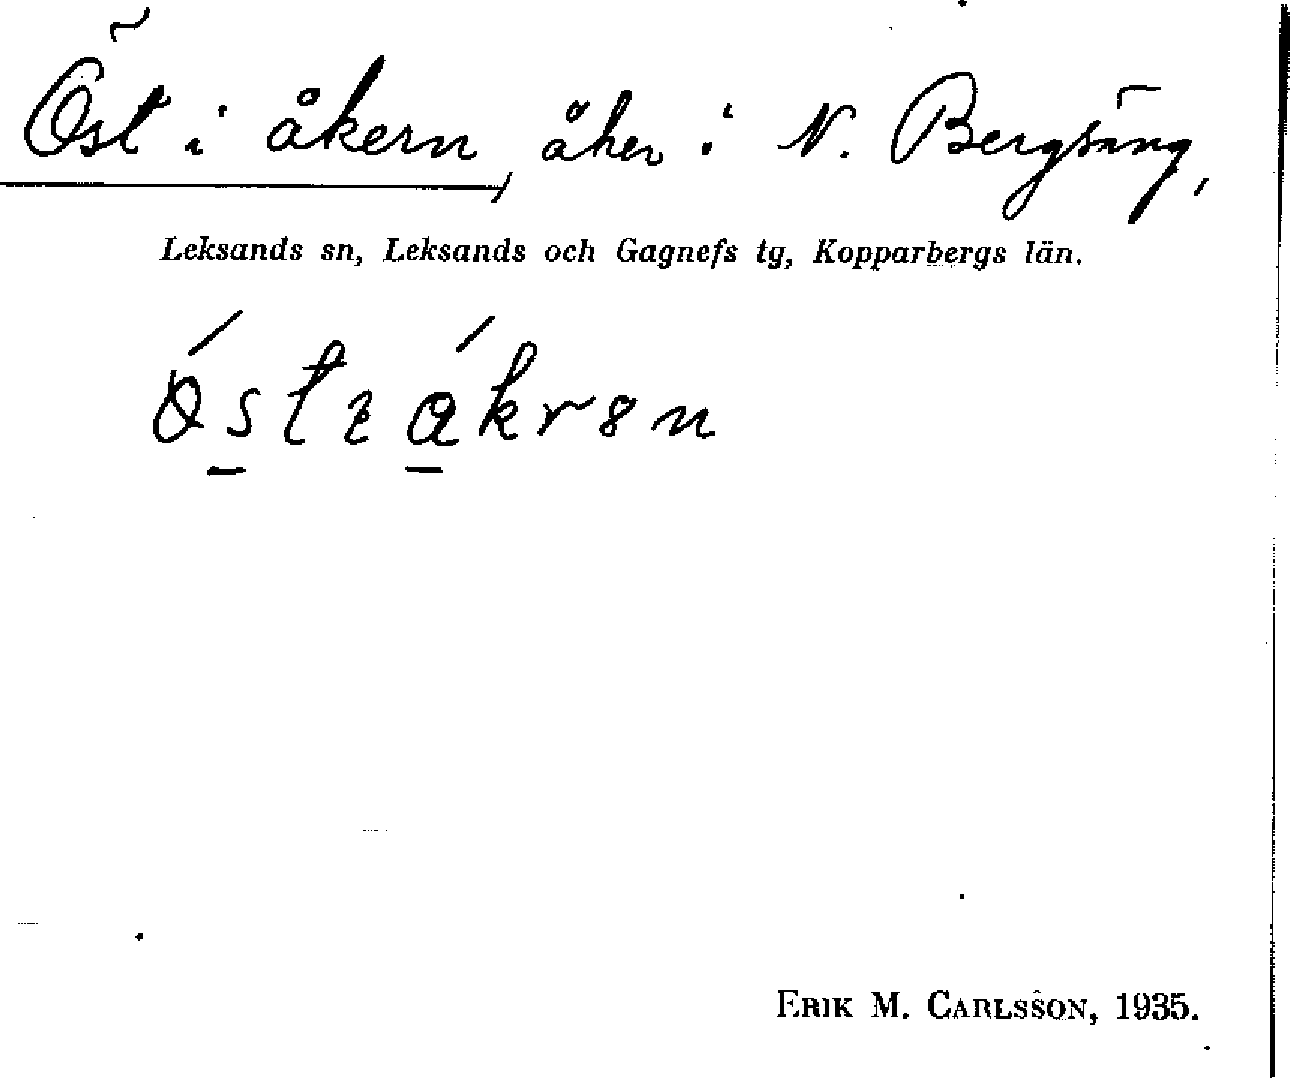 Öst i åkern, åker i N. Bergsäng,
Leksands sn, Leksands och Gagnefs tg, Kopparbergs län.
ERIK M. CARLSSON, 1935.